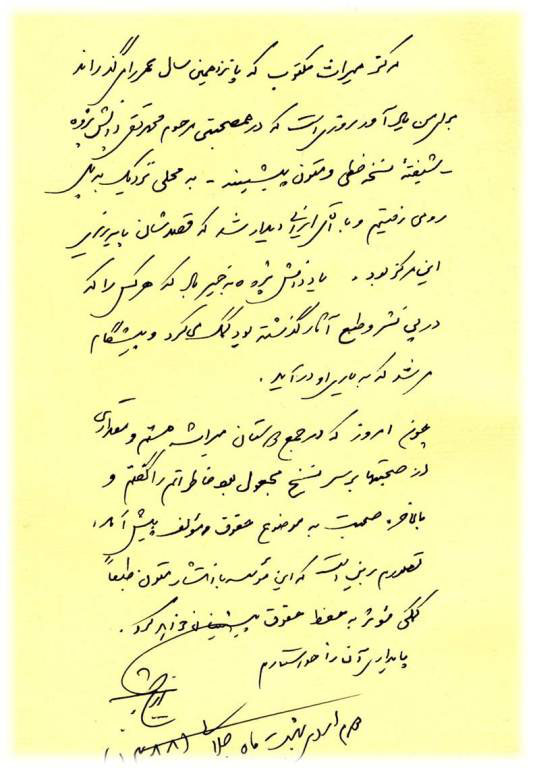 مرکز میراث مکتوب که پانزدهمین سال عمر را می‌گذراند
برای من یادآور روزی است که در همصحبتی مرحوم محمدتقی دانش‌پژوه
- شیفتهٔ نسخه خطی و متون پیشینه - به محلی نزدیک به پل
رومی رفتیم و با آقای ایرانی دیدار شد که قصدشان پایه‌ریزی
این مرکز بود. یاد دانش‌پژوه به خیر باد که هر کس را که
در پی نشر و طبع آثار گذشته بود کمک می‌کرد و پیشگام
می‌شد که به یاری او در آید.
چون امروز که در جمع دوستان میراث هستم و مقداری
از صحبتها بر سر نسخ مجعول بود خاطراتم را گفتم و
بالاخره صحبت به موضوع حقوق مؤلف پیش آمد
تصورم بر این است که این مؤسسه با انتشار متون طبعاً
کمکی مؤثر به حفظ حقوق پیشینیان خواهد کرد.
پایداری آن را خواستارم
ایرج افشار
ماه